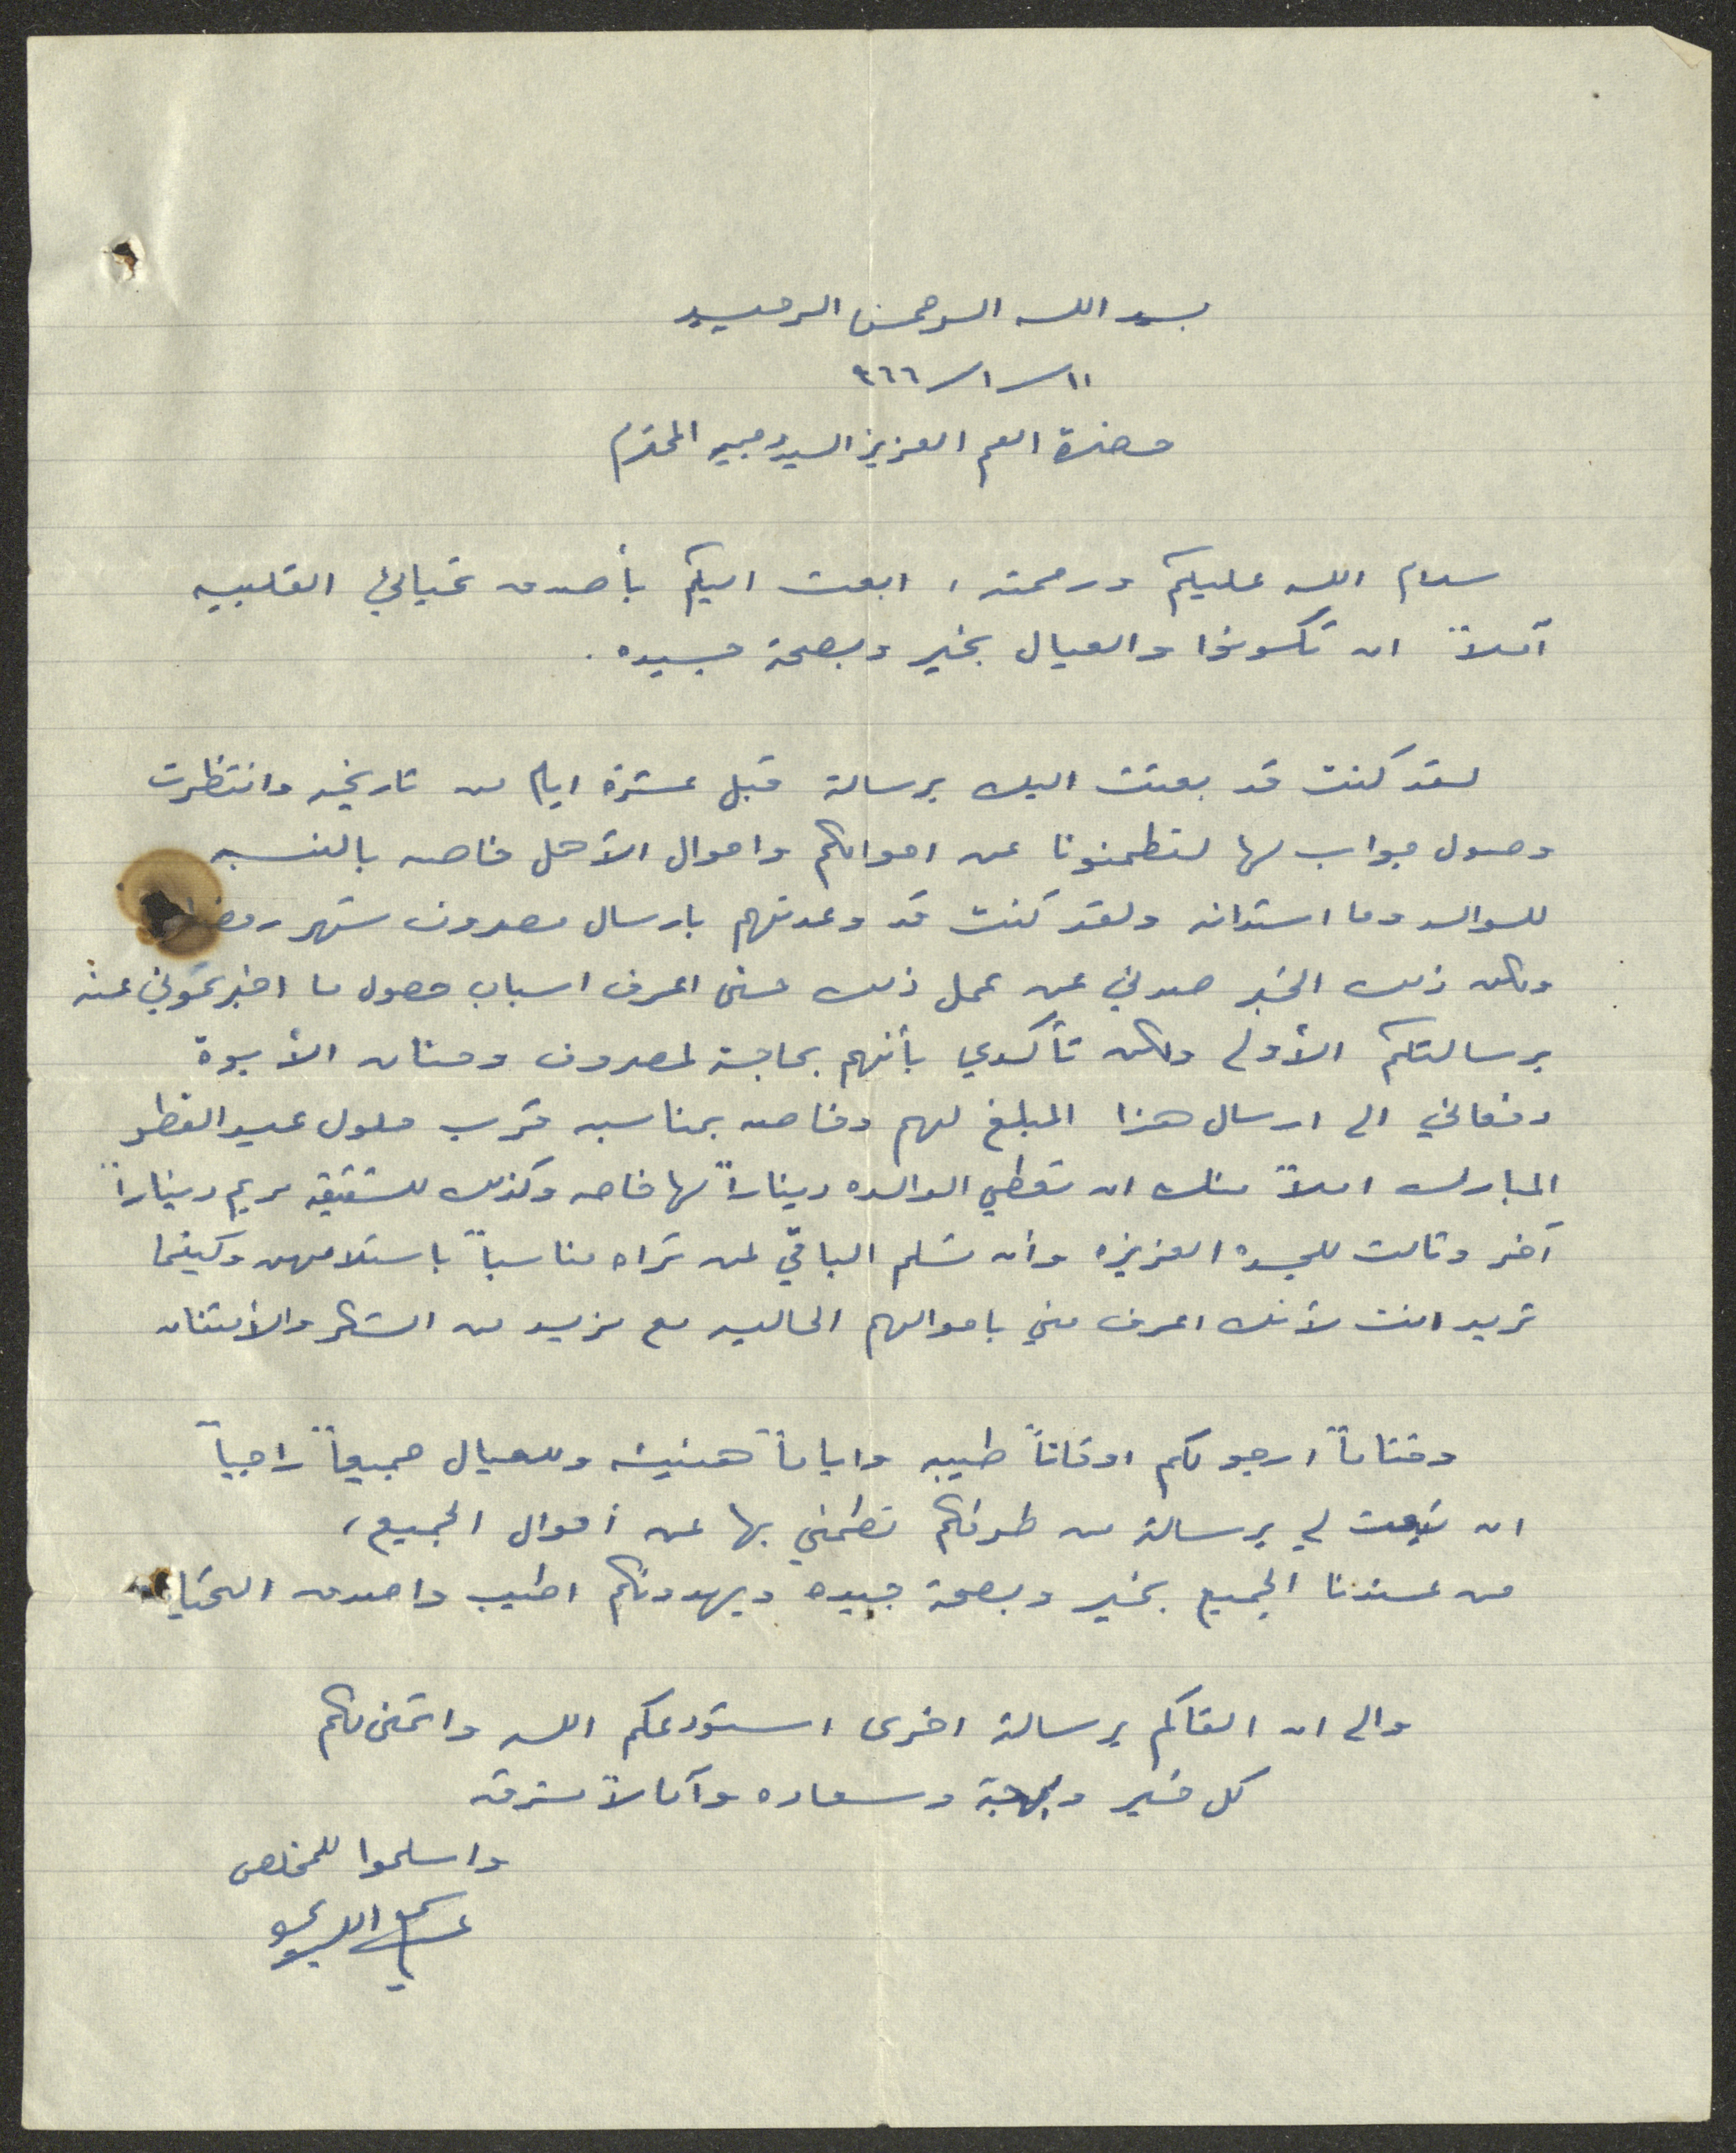 بسم الله الرحمن الرحيم
١١/١/٩٦٦
حضرة العم العزيز السيد وجيه المحترم
سلام الله عليكم ورحمته، ابعث اليكم بأصدق تحياتي القلبيه
آملاً ان تكونوا والعيال بخير وبصحة جيده.
لقد كنت قد بعثت اليك برسالة قبل عشرة ايام من تاريخه وانتظرت
وصول جواب لها لتطمنونا عن احوالكم واحوال الأهل خاصه بالنسبه
للوالد وما استدانه ولقد كنت قد وعدتهم بارسال مصروف شهر رمضان
ولكن ذلك الخبر صدني عن عمل ذلك حتى اعرف اسباب حصول ما اخبرتموني عنه
برسالتكم الأولى ولكن تأكدي بأنهم بحاجة لمصروف وحنان الأبوة
دفعاني الى ارسال هذا المبلغ لهم وخاصه بمناسبه قرب حلول عيد الفطر
المبارك املاً منك ان تعطي الوالده ديناراً لها خاصه وكذلك للشقيقه مريم ديناراً
آخر وثالث للجده العزيزه وأن تسلم الباقي لمن تراه مناسباً باستلامهن وكيفما
تريد انت لأنك اعرف مني باحوالهم الحاليه مع مزيد من الشكر والأمتنان
وختاماً ارجو لكم اوقاتاً طيبه واياماً هنيئه وللعيال جميعاً راجياً
ان تبعث لي برسالة من طرفكم تطمني بها عن أحوال الجميع،
من عندنا الجميع بخير وبصحة جيده ويهدونكم اطيب واصدق التحيات
والى ان القاكم برسالة اخرى استودعكم الله واتمنى لكم
كل خير وبهجة وسعاده وآمالاً مشرقه
واسلموا للمخلص